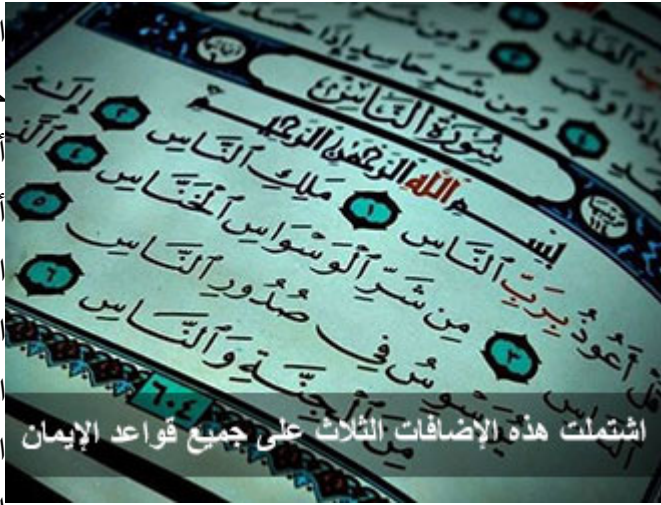 وَمِن شَرِّ حَاسِدٍ إِذَا حَسَدَ
سُورَةُ النَّاسِ
بِسْمِ اللَّهِ الرَّحْمَٰنِ الرَّحِيمِ
قُلْ أَعُوذُ بِرَبِّ ٱلنَّاسِ ١ مَلِكِ ٱلنَّاسِ ٢ إِلَٰهِ
ٱلنَّاسِ ٣ مِن شَرِّ ٱلْوَسْوَاسِ ٱلْخَنَّاسِ ٤
يُوَسْوِسُ فِي صُدُورِ ٱلنَّاسِ ٥
مِنَ ٱلْجِنَّةِ وَٱلنَّاسِ ٦
٦٠٤
اشتملت هذه الإضافات الثلاث على جميع قواعد الإيمان